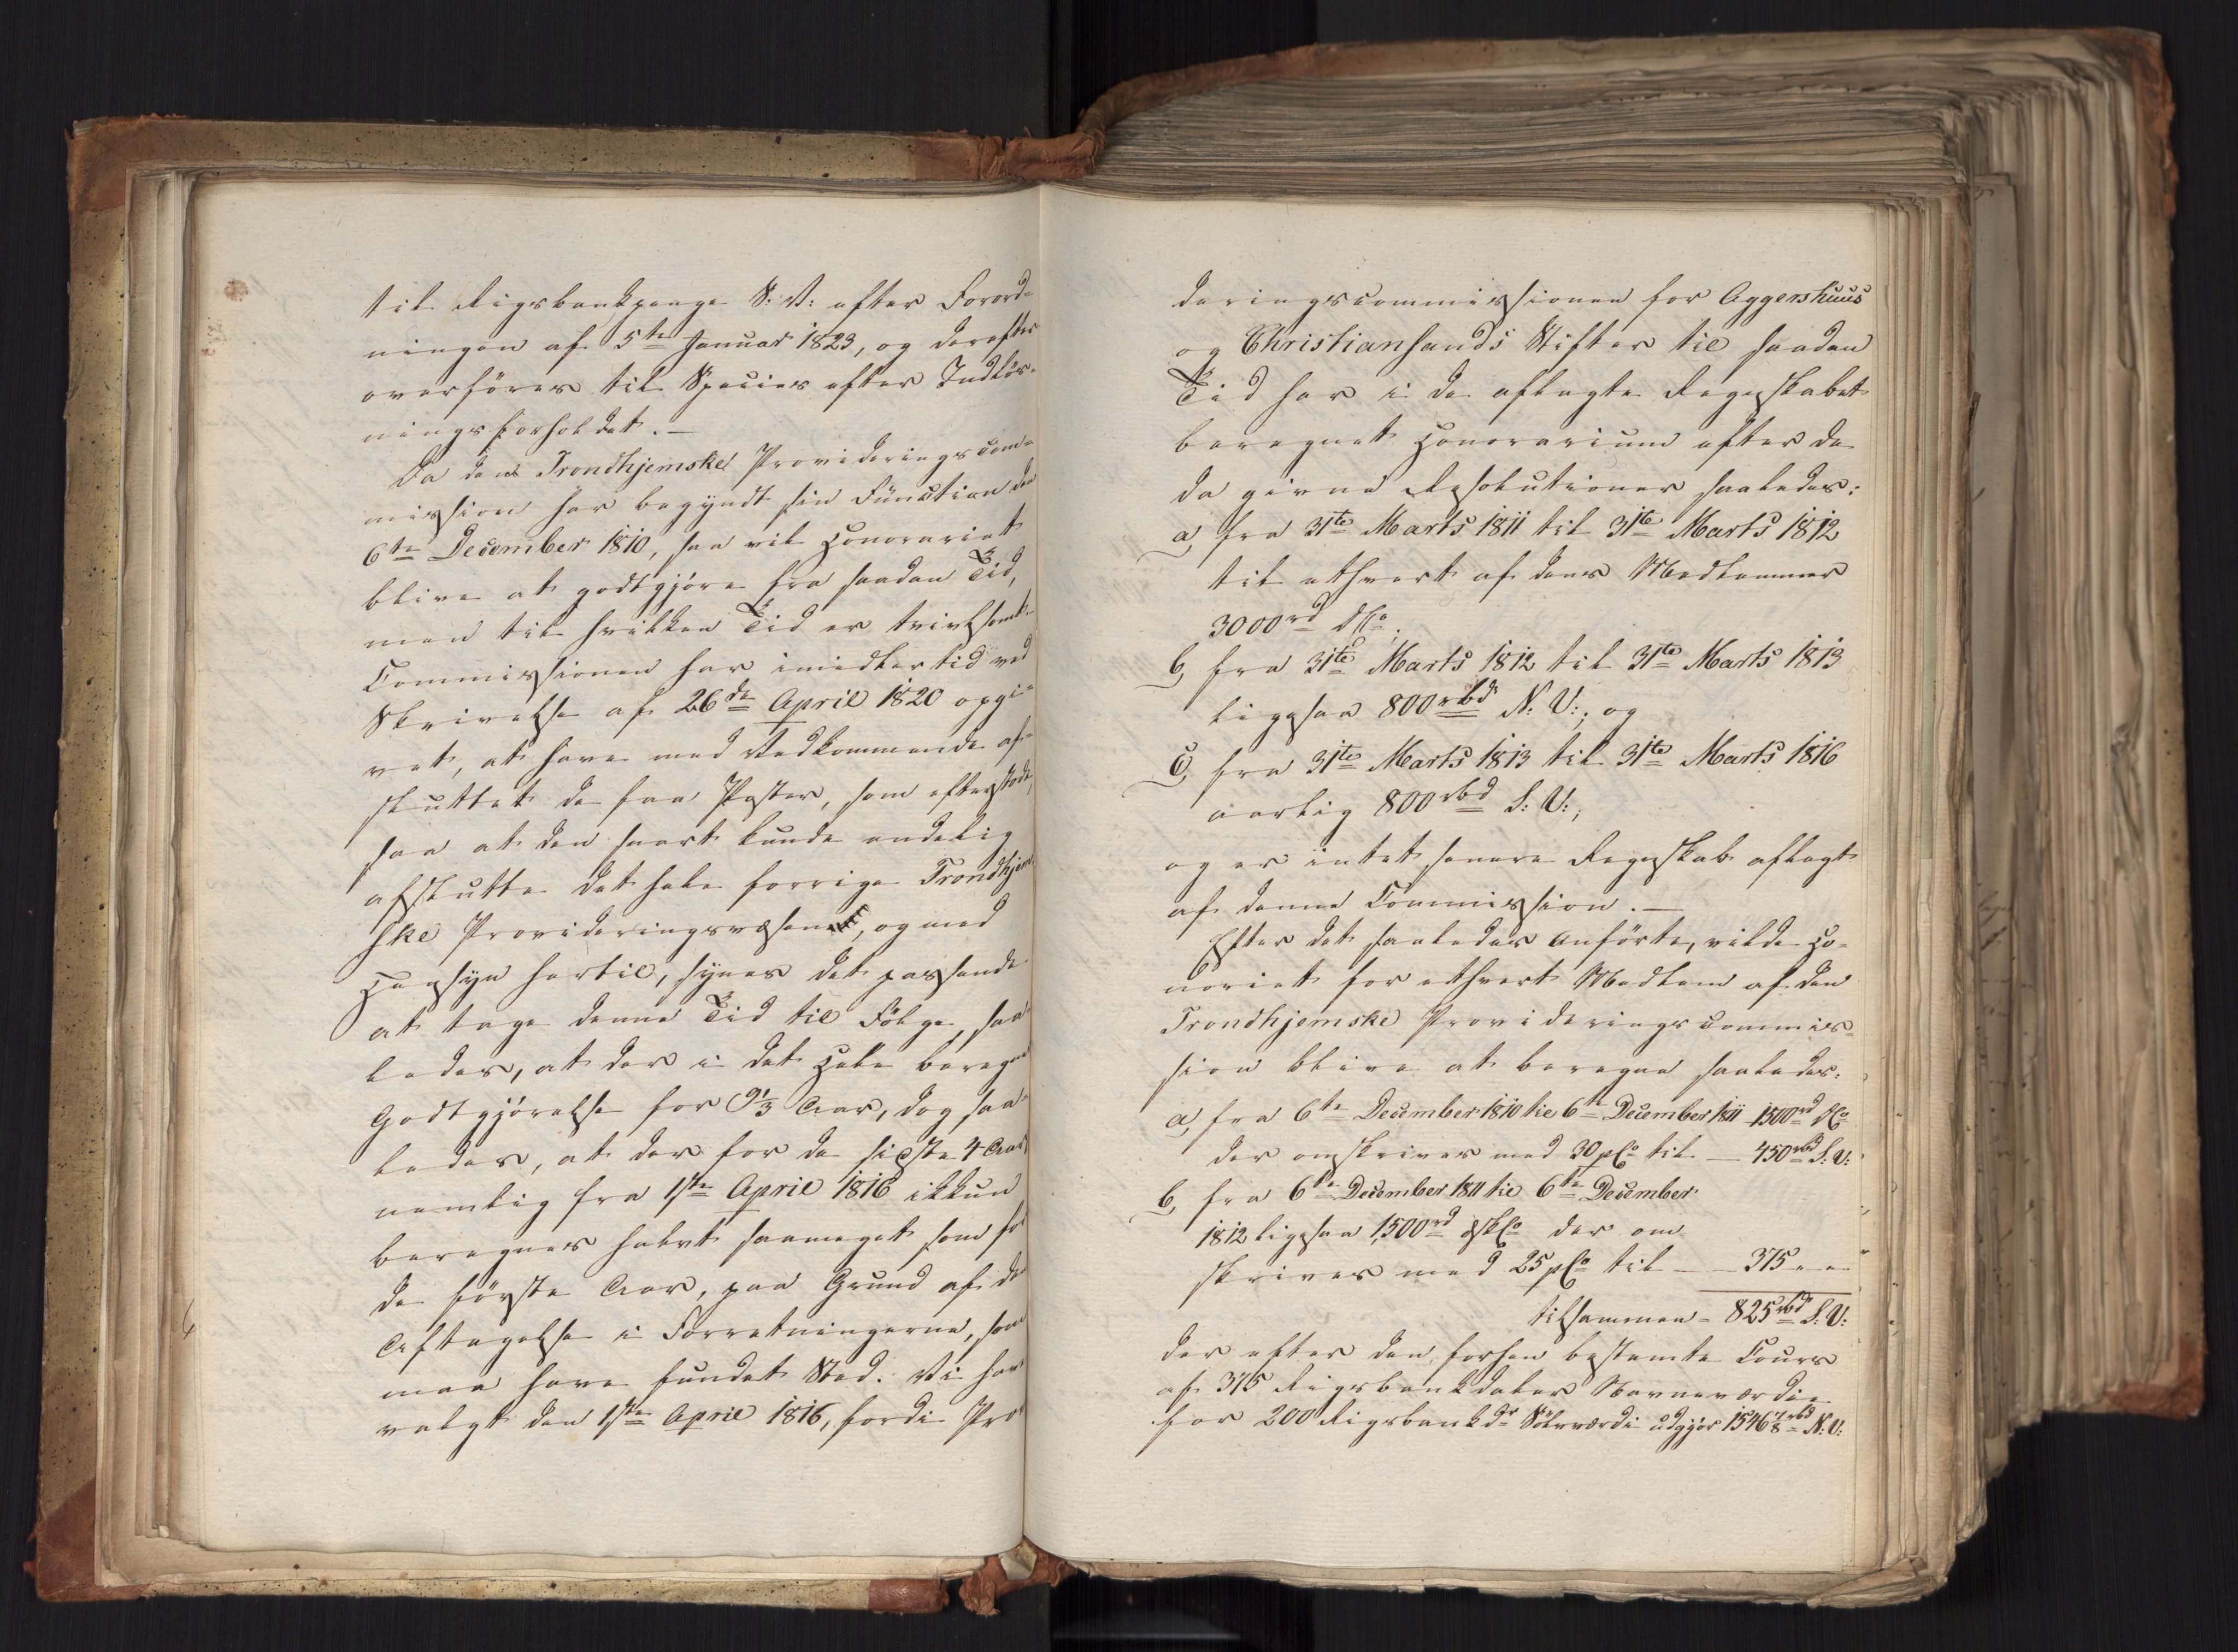 til Rigsbankpenge S: V: efter Forord-
ningen af 5te Januar 1823, og derefter
overføres til Species efter Indløs-
ningsforholdet. —
Da den Trondhjemske Provideringscom-
mission har begyndt sin Function den
6te December 1810, saa vil Honorariet
blive at godtgjøre fra saadan Tid,
men til hvilken Tid er tvivlsomt.
Commissionen har imidlertid ved
Skrivelse af 26de April 1820 opgi-
vet, at have med Vedkommende af-
sluttet de faa Poster, som efterstode,
saa at den snart kunde endelig
afslutte det hele forrige Trondhjem-
ske Provideringsvæsen, og med
Hensyn hertil, synes det passende
at tage denne Tid til Følge, saa-
ledes, at der i det Hele beregnes
Godtgjørelse for 9⅓ Aar, dog saa-
ledes, at der for de sidste 4 Aar
nemlig fra 1ste April 1816 ikkun
beregnes halvt saameget som for
de første Aar, paa Grund af de
Aftagelse i Forretningerne, som
maa have fundet Sted. Vi have
valgt den 1ste April 1816, fordi Pro-
deringscommissionen for Aggershuus
og Christiansands Stifter til saadan
Tid har i de aflagte Regnskabet
beregnet Honorarium efter de
da givne Resolutioner saaledes:
a, fra 31te Marts 1811 til 31te Marts 1812
til ethvert af dens Medlemmer
3000rd DCo.
b, fra 31te Marts 1812 til 31te Marts 1813
ligesaa 800rbd N: V:, og
c, fra 31te Marts 1813 til 31te Marts 1816
aarlig 800rbd S: V:,
og er intet senere Regnskab aflagt
af denne Commission. —
Efter det saaledes Anførte, vilde Ho-
noriet for ethvert Medlem af den
Trondhjemske Provideringscommis-
sion blive at beregne saaledes:
a, fra 6te December 1810 til 6te December 1811 1500rd DCo
der omskrives med 30 pCo til — 450rbd S: V:
b, fra 6te December 1811 til 6te December
1812 ligesaa 1,500rd DCo der om
skrives med 25 pCo til — 375 " "
tilsammen = 825rbd S: V:
der efter den forhen bestemte Cours
af 375 Rigsbankdaler Navneværdie
for 200 Rigsbankdr Sølvværdi udgjør 1546⅞rbd N: V: